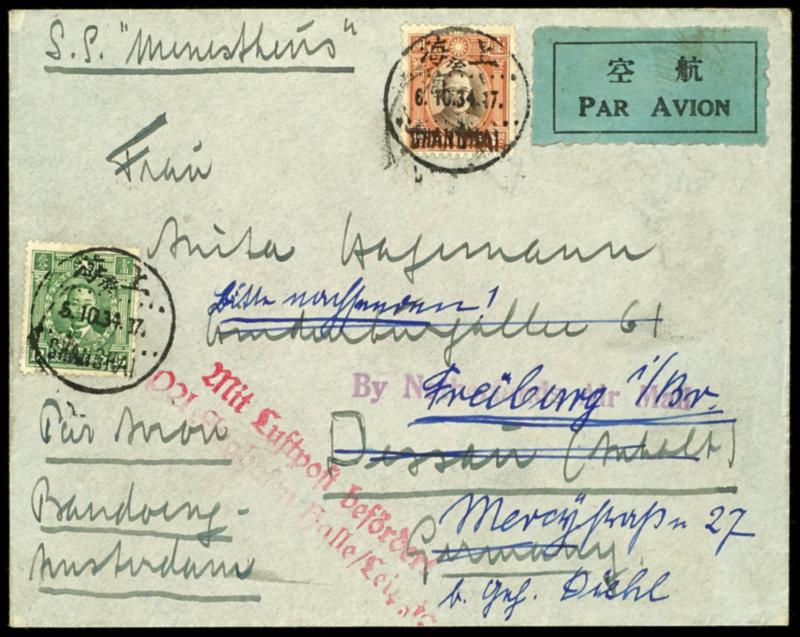 S.S. "Menestheus"
航空
PAR AVION
上海
6.10.34.17.
SHANGHAI
Frau
Anita Hagemann
Bitte nachsenden!
Hindenburgallee 61
上海
6.10.34.17.
SHANGHAI
Mit Luftpost befördert
Halle/Leipzig
By Netherlands Air Mail
Freiburg i/Br.
Dessau (Anhalt)
Par Avion
Bandoeng-
Amsterdam
Mercystraße 27
Germany
b. Geh. Diehl